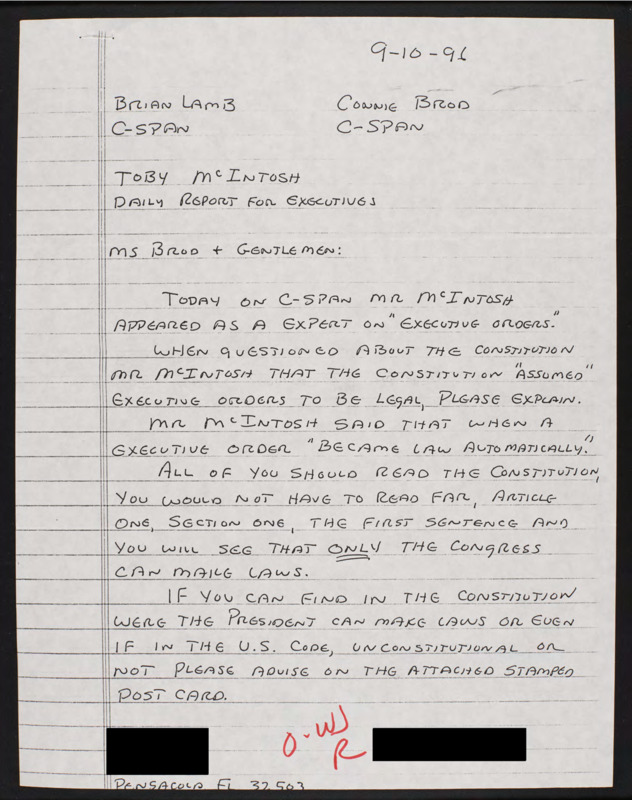 9-10-96
BRIAN LAMB CONNIE BROD
C-SPAN C-SPAN
TOBY McINTOSH
DAILY REPORT FOR EXECUTIVES
MS BROD + GENTLEMEN:
TODAY ON C-SPAN MR McINTOSH
APPEARED AS A EXPERT ON "EXECUTIVE ORDERS."
WHEN QUESTIONED ABOUT THE CONSTITUTION
MR McINTOSH THAT THE CONSTITUTION "ASSUMED"
EXECUTIVE ORDERS TO BE LEGAL, PLEASE EXPLAIN.
MR McINTOSH SAID THAT WHEN A
EXECUTIVE ORDER "BECAME LAW AUTOMATICALLY."
ALL OF YOU SHOULD READ THE CONSTITUTION,
YOU WOULD NOT HAVE TO READ FAR, ARTICLE
ONE, SECTION ONE, THE FIRST SENTENCE AND
YOU WILL SEE THAT ONLY THE CONGRESS
CAN MAKE LAWS.
IF YOU CAN FIND IN THE CONSTITUTION
WERE THE PRESIDENT CAN MAKE LAWS OR EVEN
IF IN THE U.S. CODE, UNCONSTITUTIONAL OR
NOT PLEASE ADVISE ON THE ATTACHED STAMPED
POST CARD.
R
PENSACOLA FL 32503